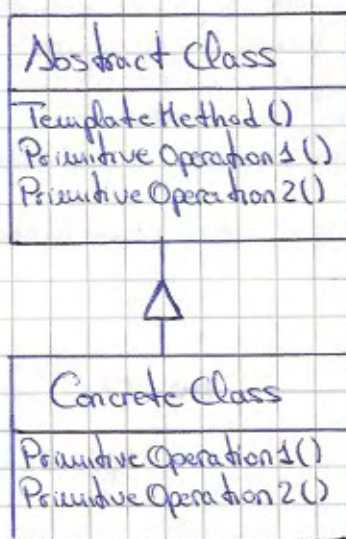 Abstract Class
TemplateMethod()
Primitive Operation 1()
Primitive Operation 2()
Concrete Class
Primitive Operation 1()
Primitive Operation 2()